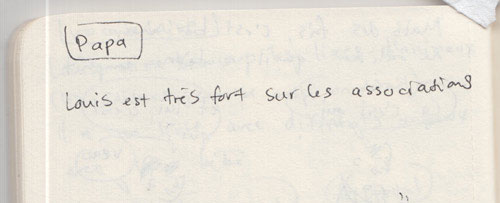 Papa
Louis est très fort sur les associations